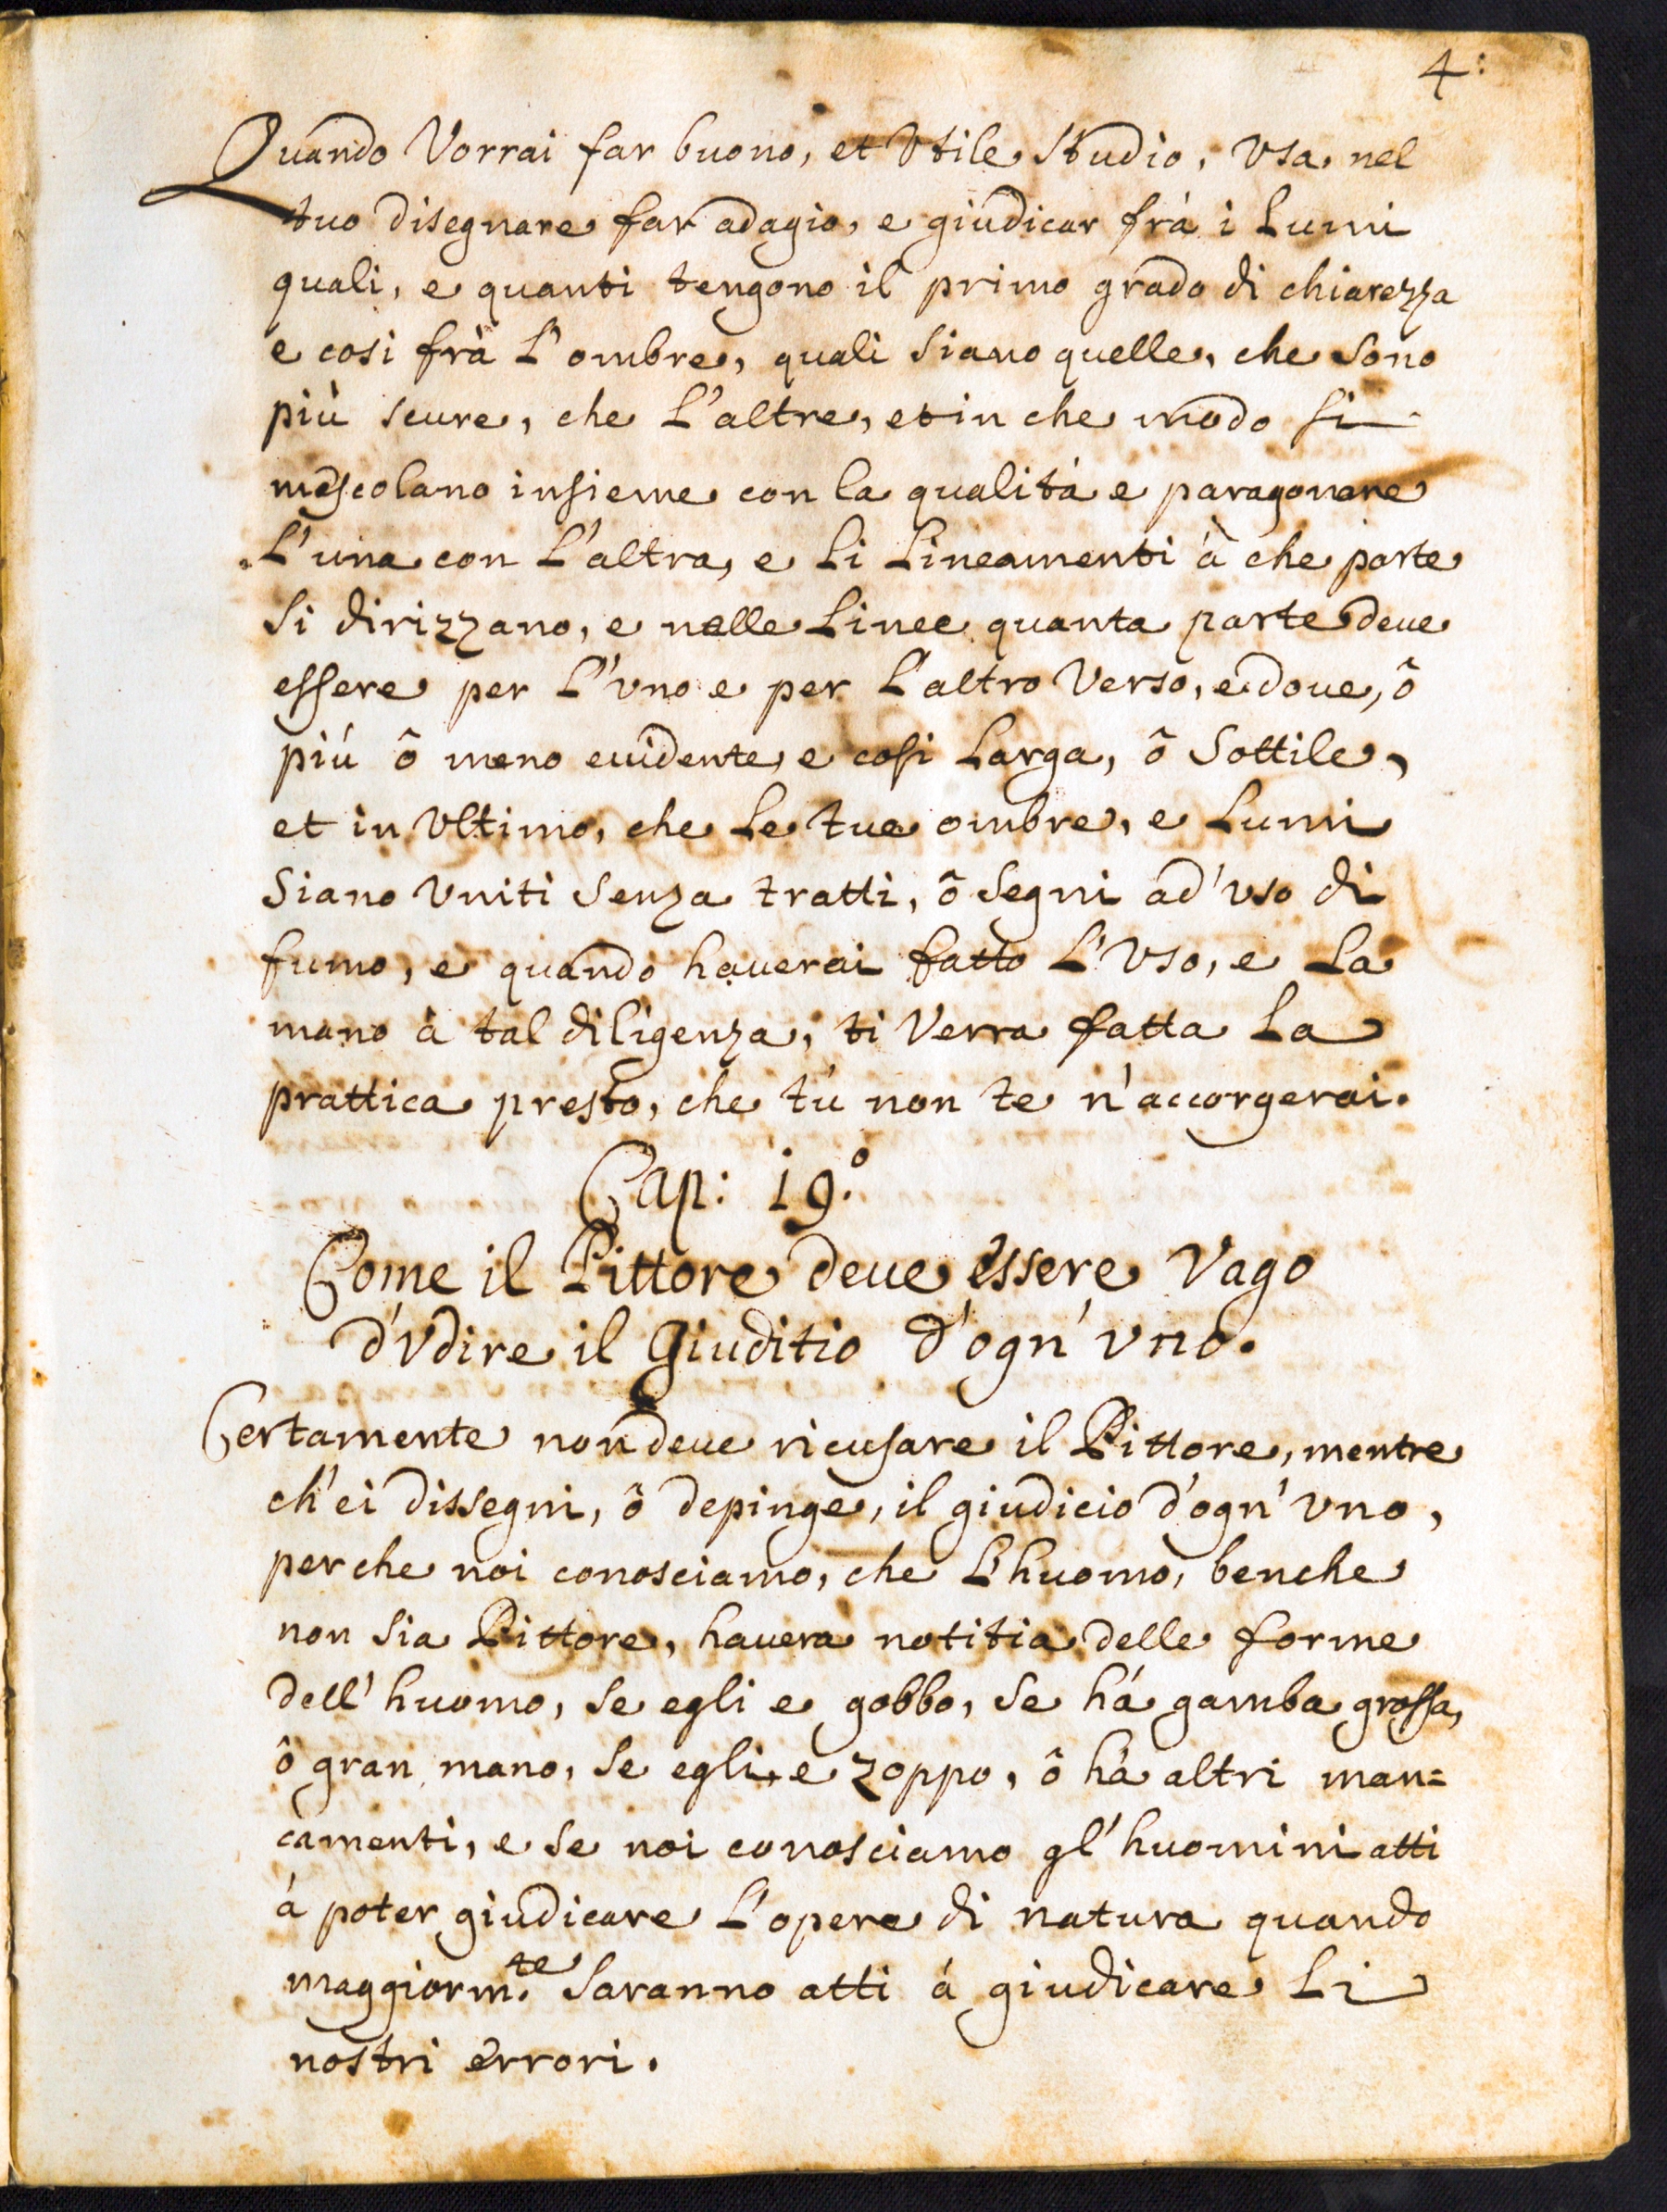 4:
Quando Vorrai far buono, et Vtile Studio, Vsa nel
tuo disegnare far adagio, e giudicar frà i Lumi
quali, e quanti tengono il primo grado di chiarezza
e così frà L'ombre, quali Siano quelle, che Sono
più scure, che L'altre, et in che modo si
mescolano insieme con la qualità e paragonare
L'una con L'altra, e Li Lineamenti à che parte
Si dirizzano, e nelle Linee quanta parte deue
essere per L'vno e per L'altro Verso, e doue, ô
più ô meno euidente, e cosi Larga, ô Sottile,
et in Vltimo, che Le tue ombre, e Lumi
Siano Vniti Senza tratti, ô Segni ad'vso di
fumo, e quando hauerai fatto L'Vso, e La
mano à tal diligenza, ti Verra fatta La
prattica presto, che tù non te n'accorgerai.
Cap: 19.º
Come il Pittore deue essere Vago
d'Vdire il Giuditio d'ogn'vno.
Certamente non deue ricusare il Pittore, mentre
ch'ei dissegni, ô depinge, il giudicio d'ogn'Vno,
perche noi conosciamo, che L'huomo, benche
non Sia Pittore, hauera notitia delle forme
dell'huomo, Se egli e gobbo, Se há gamba grossa,
ô gran mano, Se egli e zoppo, ô há altri man=
camenti, e Se noi conosciamo gl'huomini atti
á poter giudicare L'opere di natura quando
maggiorm.te Saranno atti á giudicare Li
nostri errori.